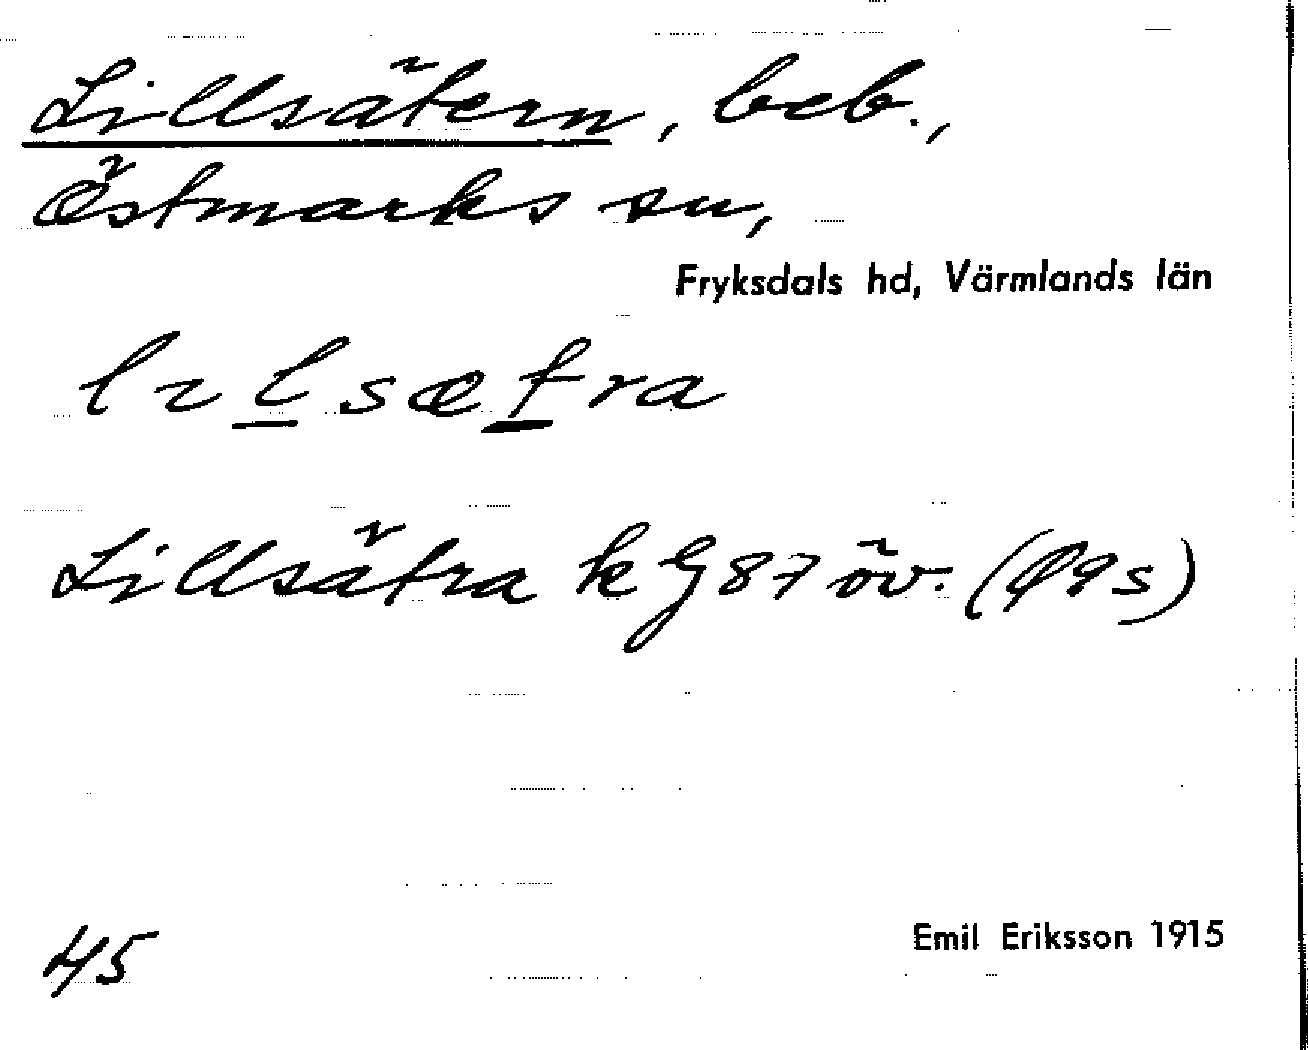 Lillsätern, beb.,
Östmarks sn,
Fryksdals hd, Värmlands län
lɪlsætra
Lillsätra kG 87 öv.
45
Emil Eriksson 1915